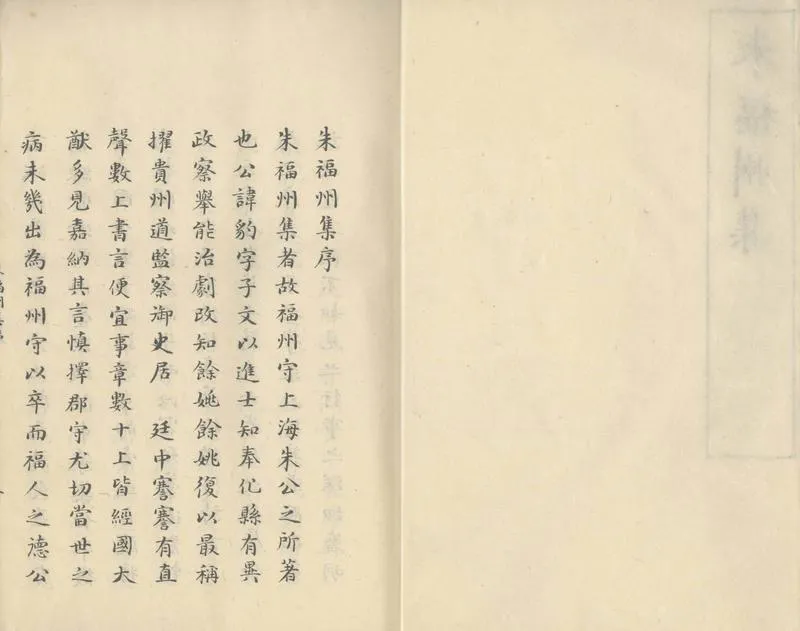 朱福州集序
朱福州集者故福州守上海朱公之所著
也公諱豹字子文以進士知奉化縣有異
政察舉能治劇改知餘姚餘姚復以最稱
擢貴州道監察御史居 廷中謇謇有直
聲數上書言便宜事章數十上皆經國大
猷多見嘉納其言慎擇郡守尤切當世之
病未幾出為福州守以卒而福人之德公